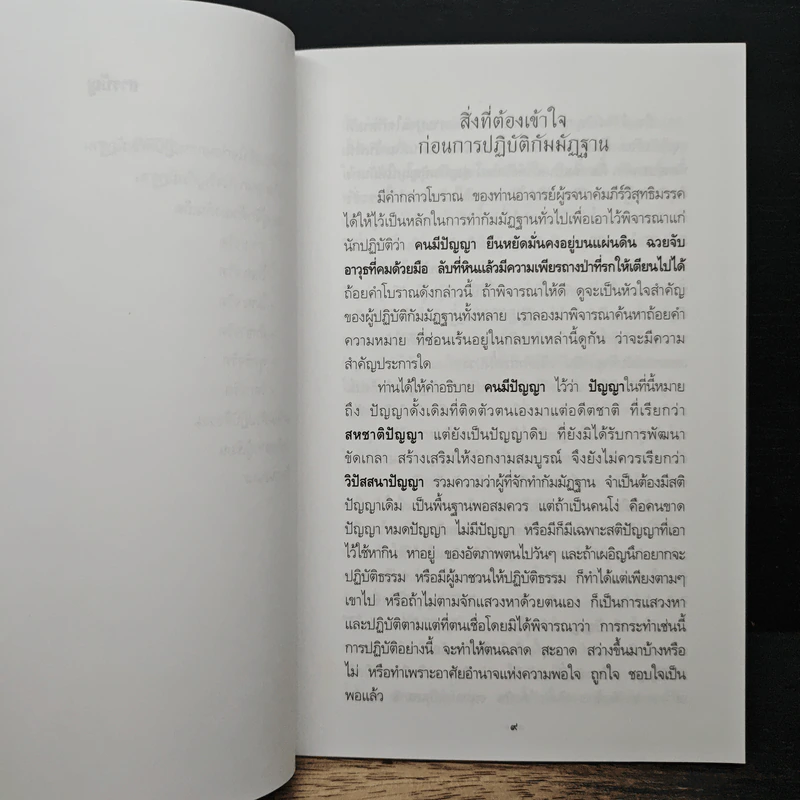 สารบัญ
สิ่งที่ต้องเข้าใจ
ก่อนการปฏิบัติกัมมัฏฐาน
มีคำกล่าวโบราณ ของท่านอาจารย์ผู้รจนาคัมภีร์วิสุทธิมรรค
ได้ให้ไว้เป็นหลักในการทำกัมมัฏฐานทั่วไปเพื่อเอาไว้พิจารณาแก่
นักปฏิบัติว่า คนมีปัญญา ยืนหยัดมั่นคงอยู่บนแผ่นดิน ฉวยจับ
อาวุธที่คมด้วยมือ ลับที่หินแล้วมีความเพียรถางป่าที่รกให้เตียนไปได้
ถ้อยคำโบราณดังกล่าวนี้ ถ้าพิจารณาให้ดี ดูจะเป็นหัวใจสำคัญ
ของผู้ปฏิบัติกัมมัฏฐานทั้งหลาย เราลองมาพิจารณาค้นหาถ้อยคำ
ความหมาย ที่ซ่อนเร้นอยู่ในกลบทเหล่านี้ดูกัน ว่าจะมีความ
สำคัญประการใด
ท่านได้ให้คำอธิบาย คนมีปัญญา ไว้ว่า ปัญญาในที่นี้หมาย
ถึง ปัญญาดั้งเดิมที่ติดตัวตนเองมาแต่อดีตชาติ ที่เรียกว่า
สหชาติปัญญา แต่ยังเป็นปัญญาดิบ ที่ยังมิได้รับการพัฒนา
ขัดเกลา สร้างเสริมให้งอกงามสมบูรณ์ จึงยังไม่ควรเรียกว่า
วิปัสสนาปัญญา รวมความว่าผู้ที่จักทำกัมมัฏฐาน จำเป็นต้องมีสติ
ปัญญาเดิม เป็นพื้นฐานพอสมควร แต่ถ้าเป็นคนโง่ คือคนขาด
ปัญญา หมดปัญญา ไม่มีปัญญา หรือมีก็มีเฉพาะสติปัญญาที่เอา
ไว้ใช้หากิน หาอยู่ ของอัตภาพตนไปวันๆ และถ้าเผอิญนึกอยากจะ
ปฏิบัติธรรม หรือมีผู้มาชวนให้ปฏิบัติธรรม ก็ทำได้แต่เพียงตามๆ
เขาไป หรือถ้าไม่ตามจักแสวงหาด้วยตนเอง ก็เป็นการแสวงหา
และปฏิบัติตามแต่ที่ตนเชื่อโดยมิได้พิจารณาว่า การกระทำเช่นนี้
การปฏิบัติอย่างนี้ จะทำให้ตนฉลาด สะอาด สว่างขึ้นมาบ้างหรือ
ไม่ หรือทำเพราะอาศัยอำนาจแห่งความพอใจ ถูกใจ ชอบใจเป็น
พอแล้ว
๙